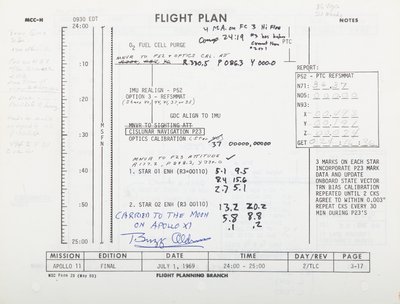 MCC-H 0930 EDT FLIGHT PLAN NOTES
24:00
O₂ FUEL CELL PURGE
Comp 24:19
PTC
R 330.5 P 086.3 Y 000.0
REPORT:
P52 - PTC REFSMMAT
N71:
N05:
N93:
X
Y
Z
GET
IMU REALIGN - P52
OPTION 3 - REFSMMAT
GDC ALIGN TO IMU
MNVR TO SIGHTING ATT
CISLUNAR NAVIGATION P23
OPTICS CALIBRATION
37 00000, 00000
:10
:20
:30
MSFN
:40
:50
25:00
MNVR TO P23 ATTITUDE
1. STAR 01 ENH (R3=00110)
5.1 9.5
8.4 15.6
2.7 5.1
2. STAR 02 ENH (R3=00110)
13.2 20.2
5.8 8.8
.1 .2
3 MARKS ON EACH STAR
INCORPORATE P23 MARK
DATA AND UPDATE
ONBOARD STATE VECTOR
TRN BIAS CALIBRATION
REPEATED UNTIL 2 CKS
AGREE TO WITHIN 0.003°
REPEAT CKS EVERY 30
MIN DURING P23'S
CARRIED TO THE MOON
ON APOLLO XI
Buzz Aldrin
MISSION EDITION DATE TIME DAY/REV PAGE
APOLLO 11 FINAL JULY 1, 1969 24:00 - 25:00 2/TLC 3-17
MSC Form 29 (May 69) FLIGHT PLANNING BRANCH